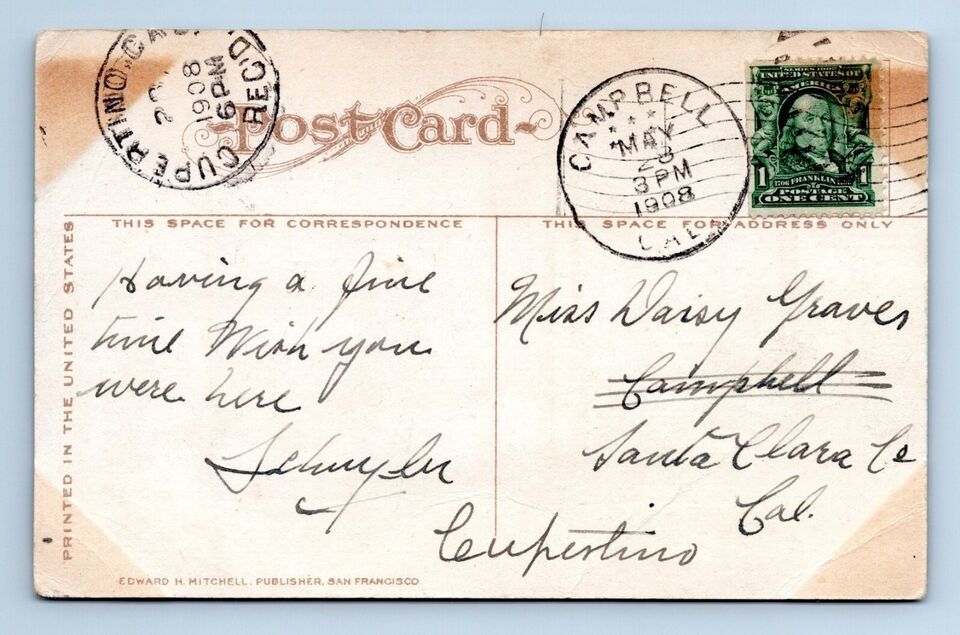 CUPERTINO, CAL.
1908
6 PM
REC'D
Post Card
CAMPBELL
MAY
3 PM
1908
CAL
SERIES 1902
UNITED STATES OF
AMERICA
1 1706 FRANKLIN 1790 1
POSTAGE
ONE CENT
THIS SPACE FOR CORRESPONDENCE
THIS SPACE FOR ADDRESS ONLY
PRINTED IN THE UNITED STATES
Having a fine
time Wish you
were here
Schuyler
Miss Daisy Graves
Campbell
Santa Clara Co
Cal.
Cupertino
EDWARD H. MITCHELL, PUBLISHER, SAN FRANCISCO